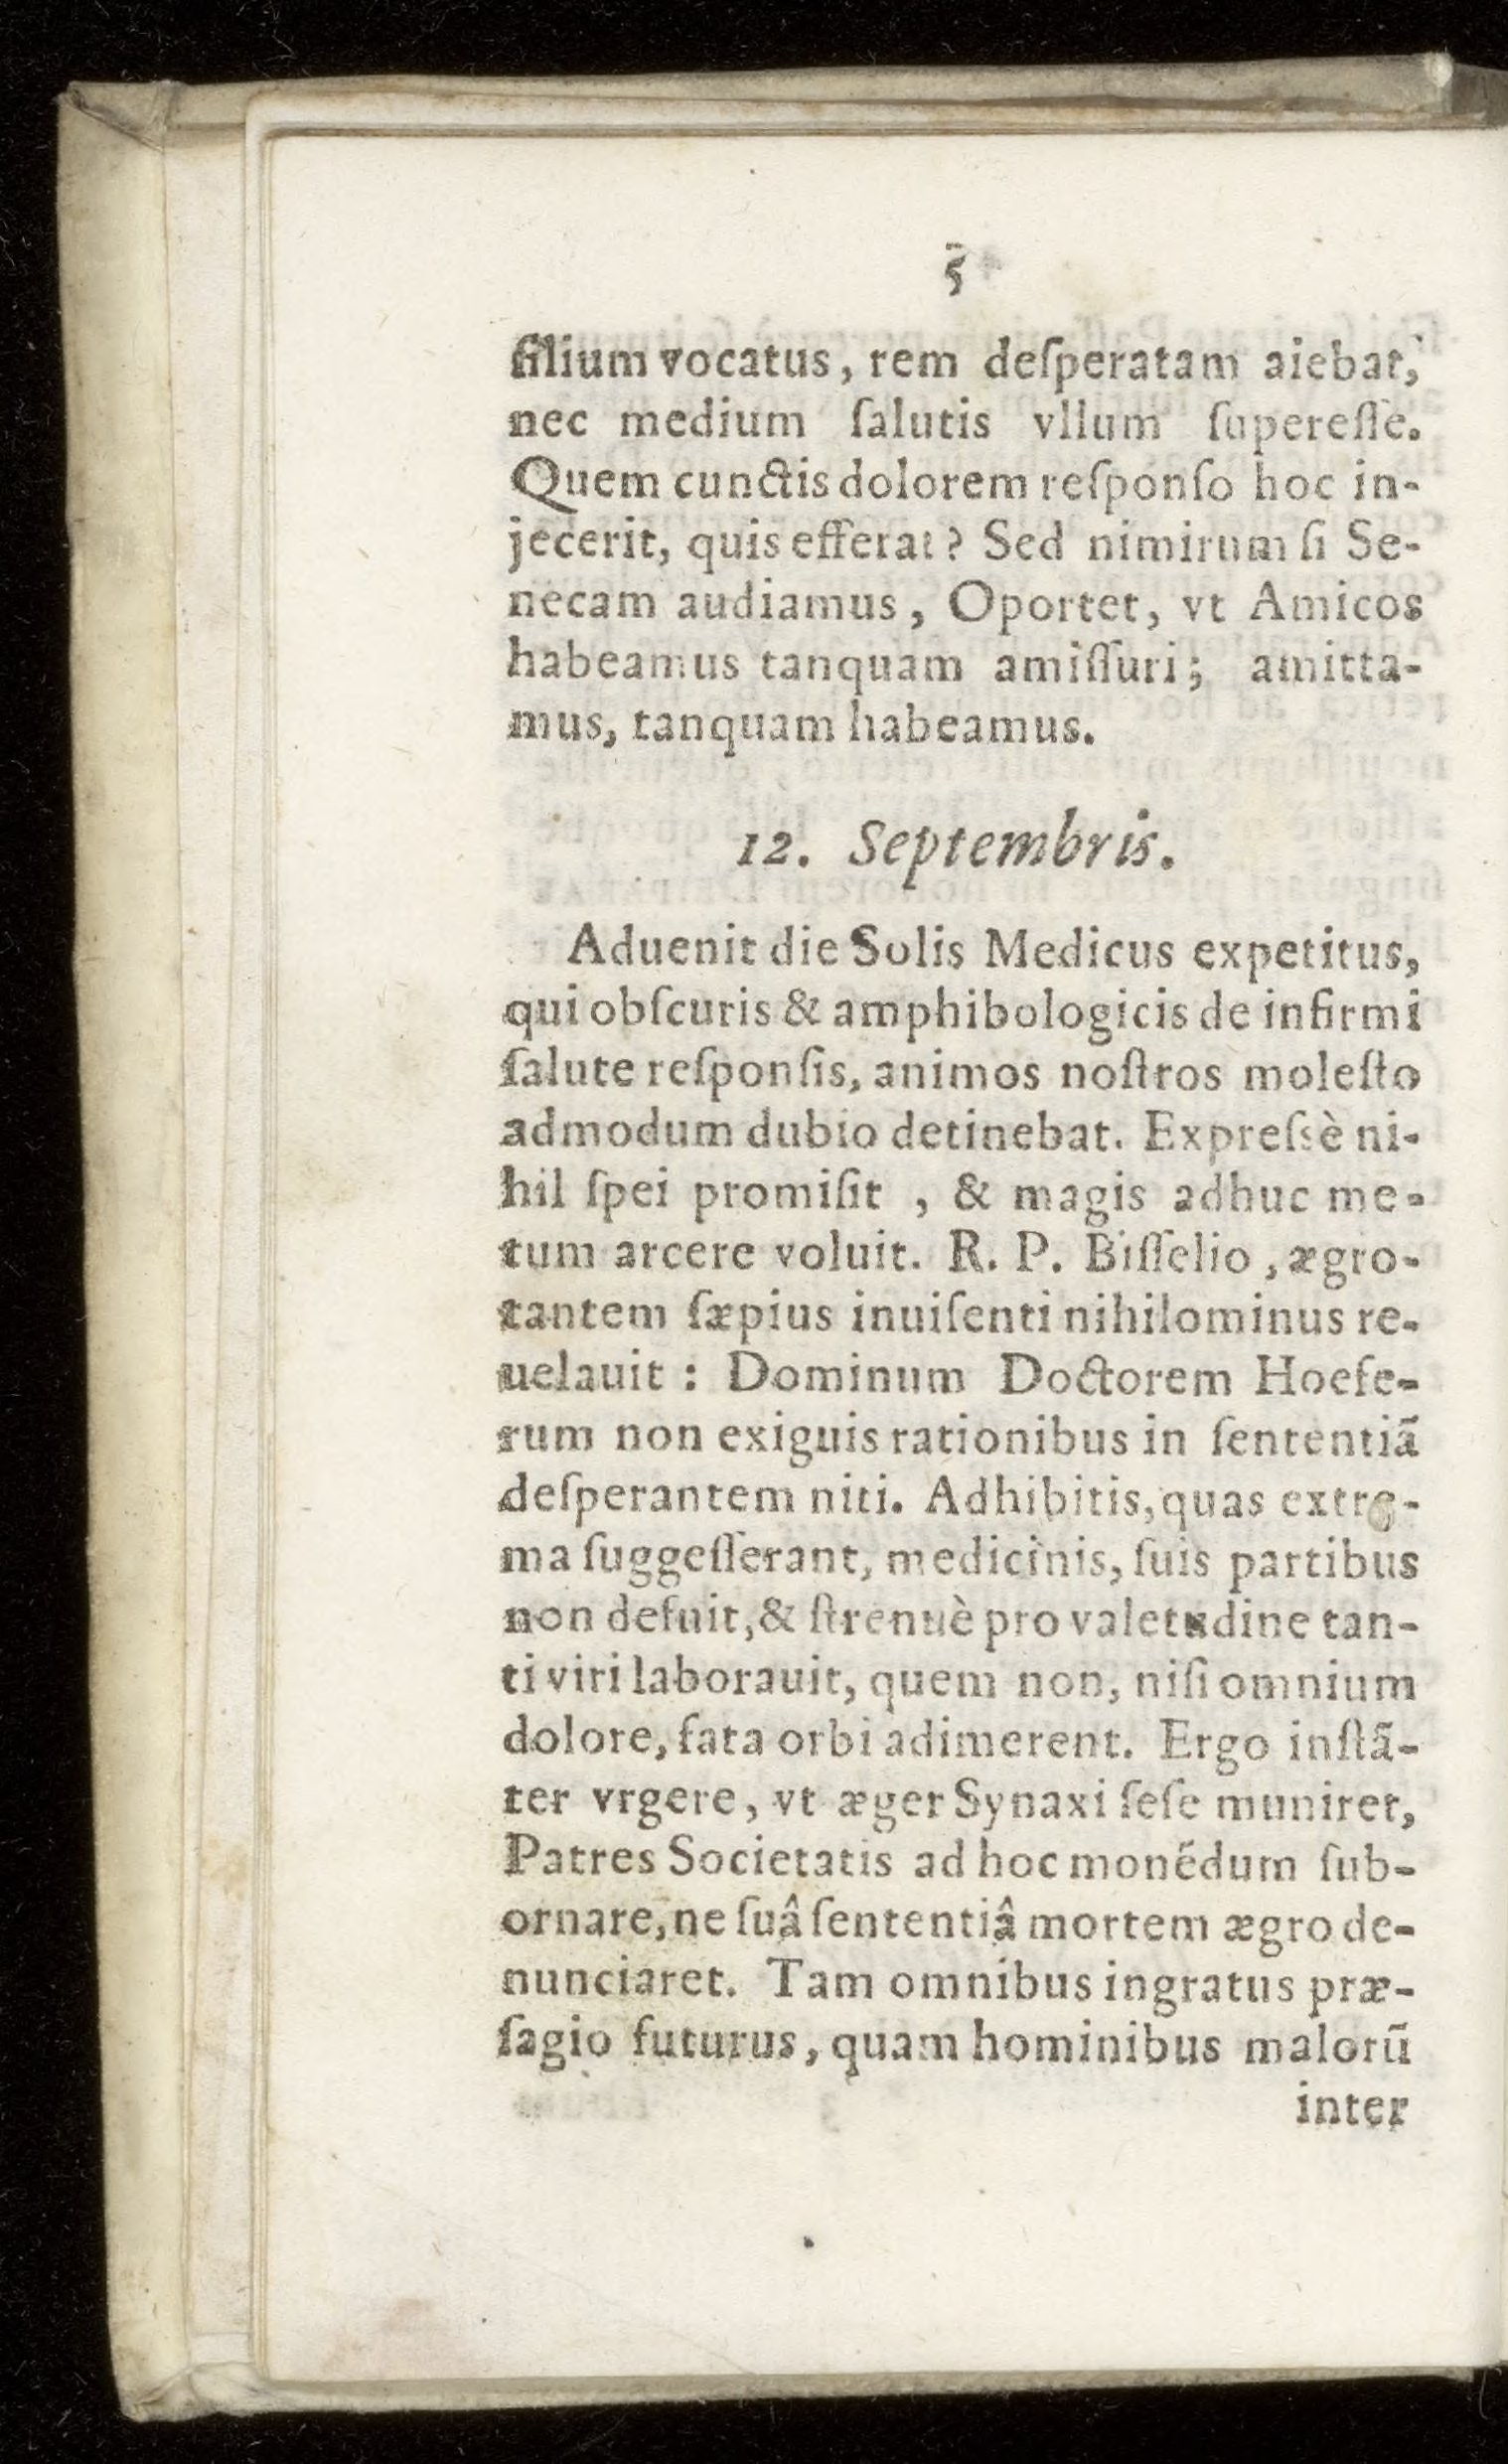 5
filium vocatus, rem deſperatam aiebat,
nec medium ſalutis vllum ſupereſſe.
Quem cunctis dolorem reſponſo hoc in-
jecerit, quis efferat? Sed nimirum ſi Se-
necam audiamus, Oportet, vt Amicos
habeamus tanquam amiſſuri; amitta-
mus, tanquam habeamus.
12. Septembris.
Aduenit die Solis Medicus expetitus,
qui obſcuris & amphibologicis de infirmi
ſalute reſponſis, animos noſtros moleſto
admodum dubio detinebat. Expreſsè ni-
hil ſpei promiſit , & magis adhuc me-
tum arcere voluit. R. P. Biſſelio, ægro-
tantem ſæpius inuiſenti nihilominus re-
uelauit : Dominum Doctorem Hoefe-
rum non exiguis rationibus in ſententiã
deſperantem niti. Adhibitis, quas extre-
ma ſuggeſſerant, medicinis, ſuis partibus
non defuit, & ſtrenuè pro valetudine tan-
ti viri laborauit, quem non, niſi omnium
dolore, fata orbi adimerent. Ergo inſtã-
ter vrgere, vt æger Synaxi ſeſe muniret,
Patres Societatis ad hoc monẽdum ſub-
ornare, ne ſuâ ſententiâ mortem ægro de-
nunciaret. Tam omnibus ingratus præ-
ſagio futurus, quam hominibus malorũ
inter